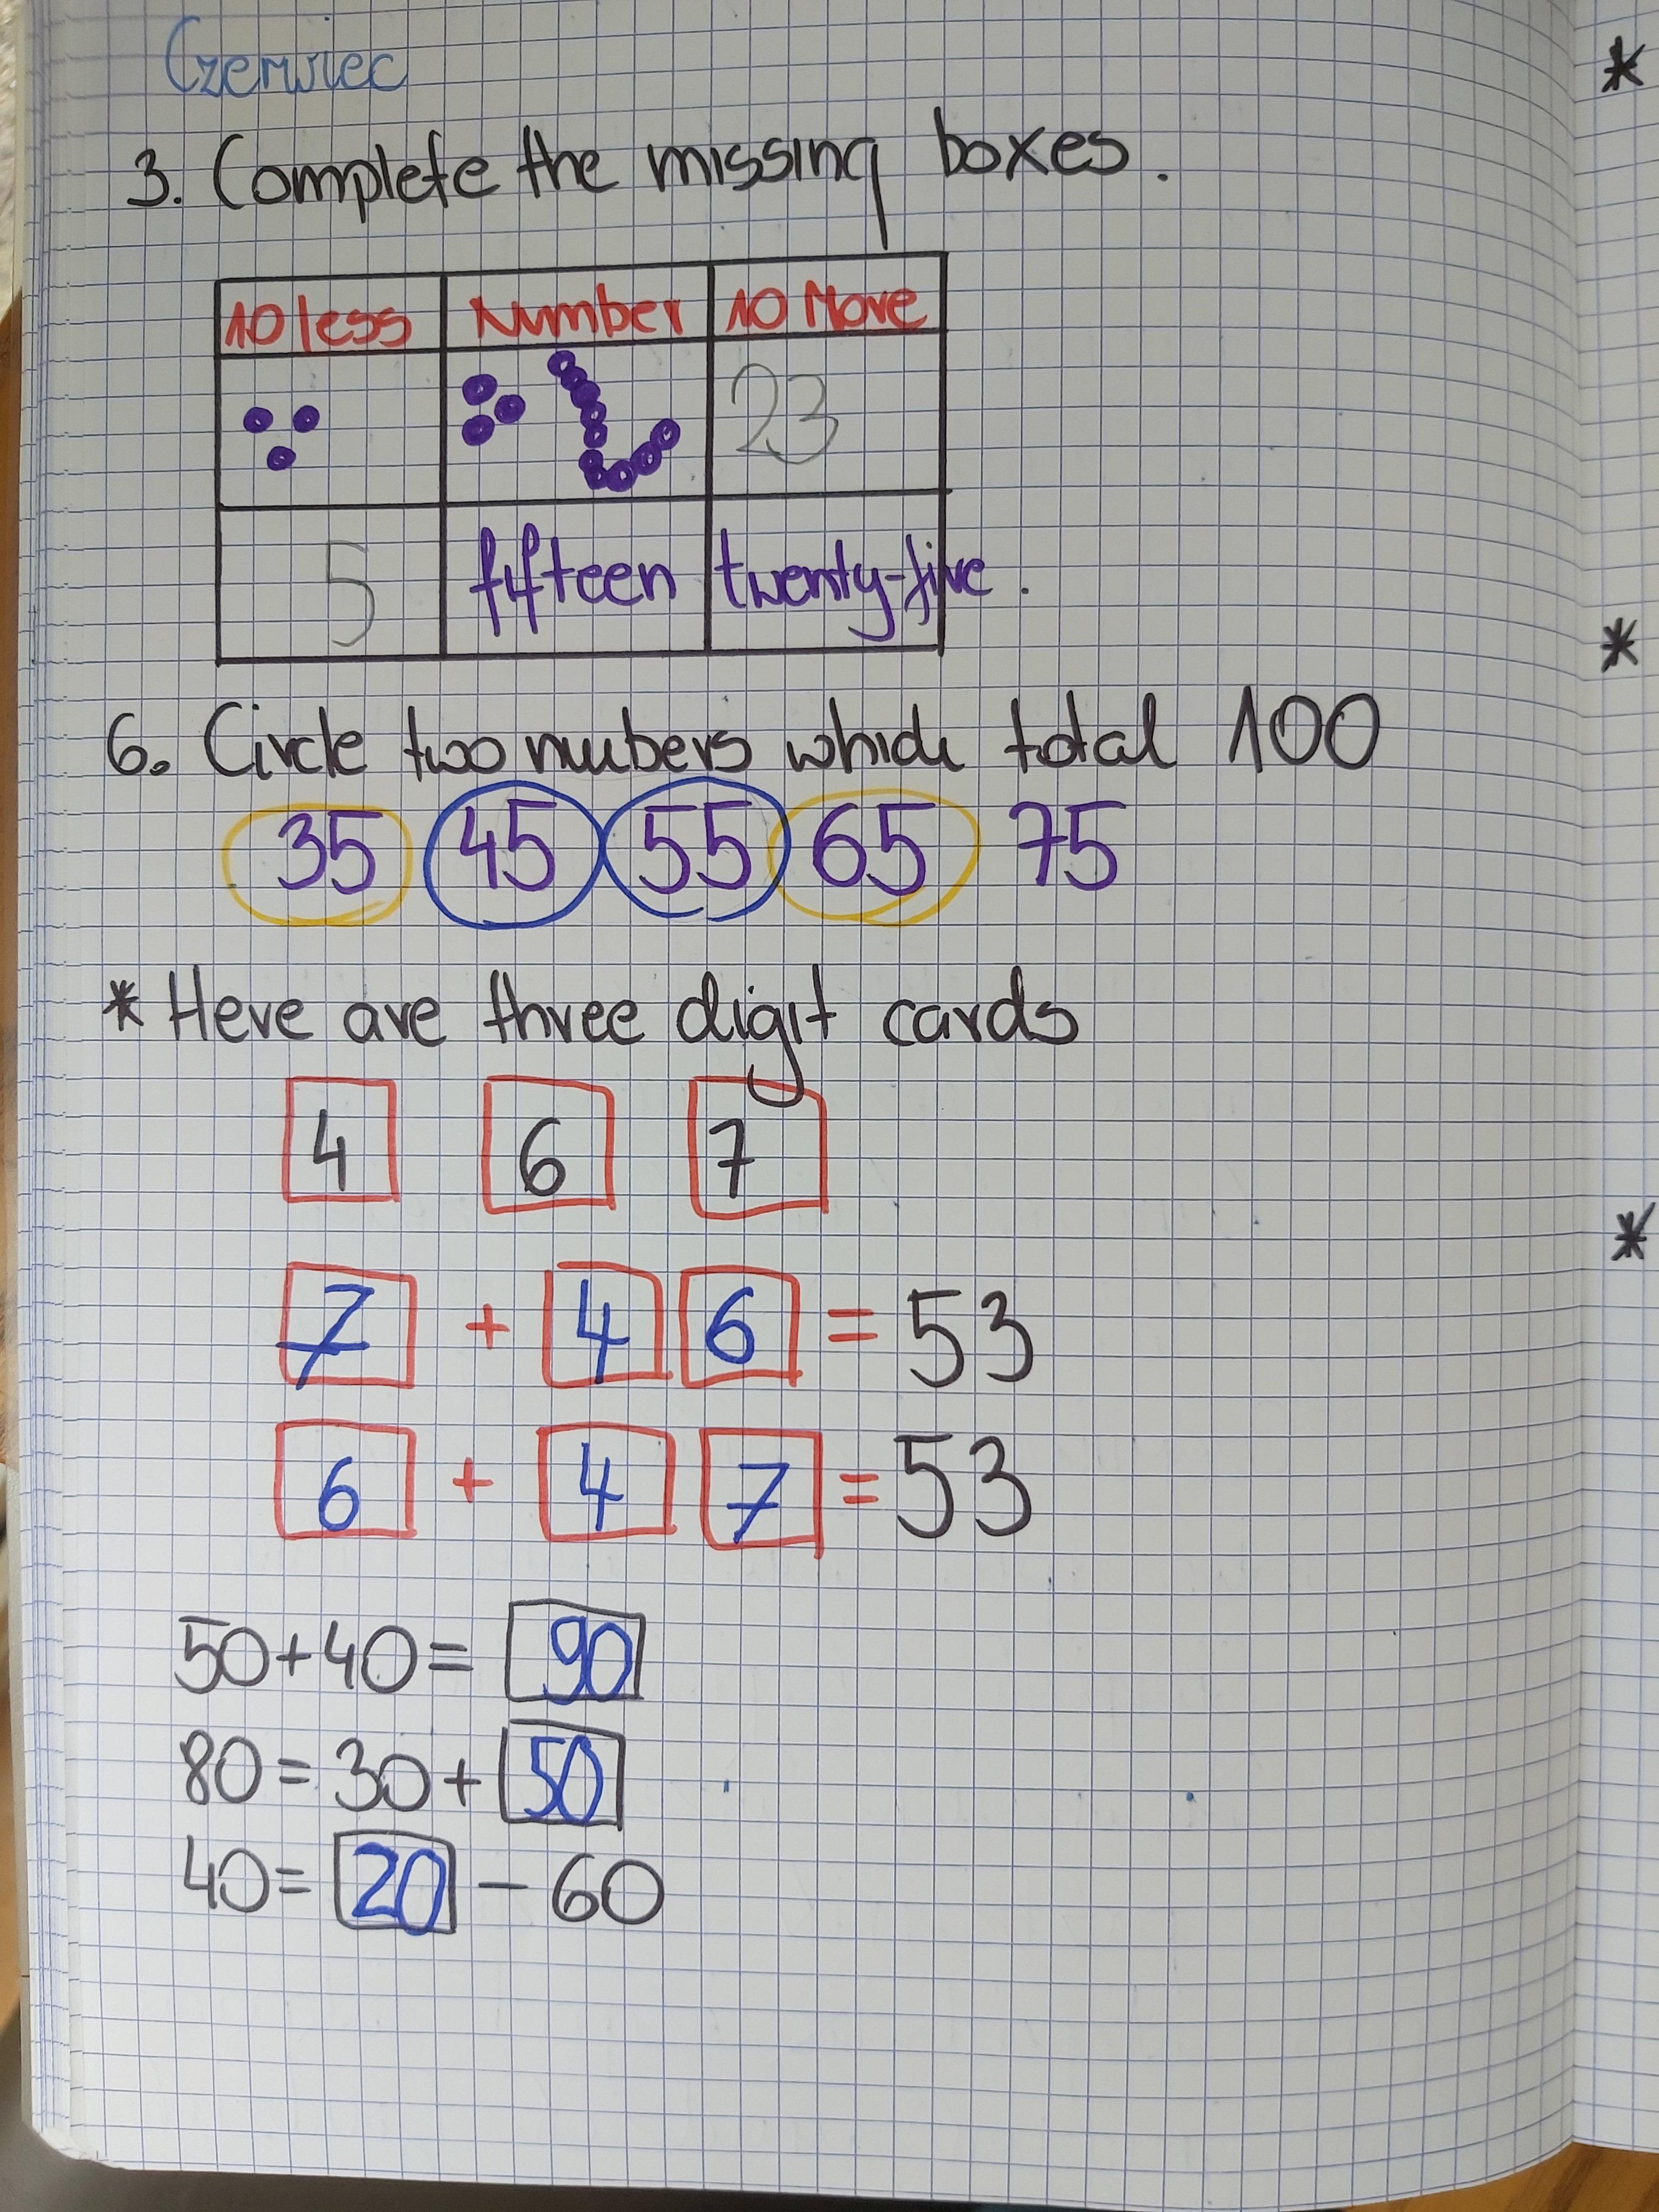 Czerwiec
3. Complete the missing boxes.
10 less Number 10 More
23
5 fifteen twenty-five.
6. Circle two nubers which total 100
35 45 55 65 75
* Here are three digit cards
4 6 7
7 + 4 6 = 53
6 + 4 7 = 53
50+40= 90
80=30+50
40= 20 - 60
*
*
*